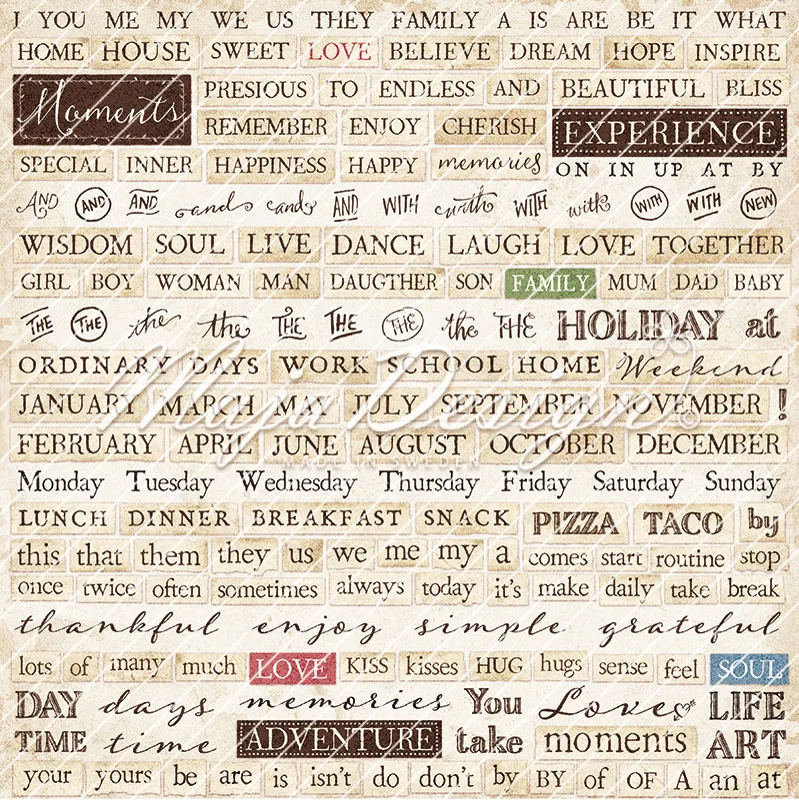 I YOU ME MY WE US THEY FAMILY A IS ARE BE IT WHAT
HOME HOUSE SWEET LOVE BELIEVE DREAM HOPE INSPIRE
Moments PRESIOUS TO ENDLESS AND BEAUTIFUL BLISS
REMEMBER ENJOY CHERISH EXPERIENCE
SPECIAL INNER HAPPINESS HAPPY memories ON IN UP AT BY
AND AND AND and and AND WITH with WITH with WITH WITH NEW
WISDOM SOUL LIVE DANCE LAUGH LOVE TOGETHER
GIRL BOY WOMAN MAN DAUGTHER SON FAMILY MUM DAD BABY
THE THE the the THE THE THE the THE HOLIDAY at
ORDINARY DAYS WORK SCHOOL HOME Weekend
JANUARY MARCH MAY JULY SEPTEMBER NOVEMBER !
Maja Design
FEBRUARY APRIL JUNE AUGUST OCTOBER DECEMBER
MADE IN SWEDEN
Monday Tuesday Wednesday Thursday Friday Saturday Sunday
LUNCH DINNER BREAKFAST SNACK PIZZA TACO by
this that them they us we me my a comes start routine stop
once twice often sometimes always today it's make daily take break
thankful enjoy simple grateful
lots of many much LOVE KISS kisses HUG hugs sense feel SOUL
DAY days memories You Love LIFE
TIME time ADVENTURE take moments ART
your yours be are is isn't do don't by BY of OF A an at